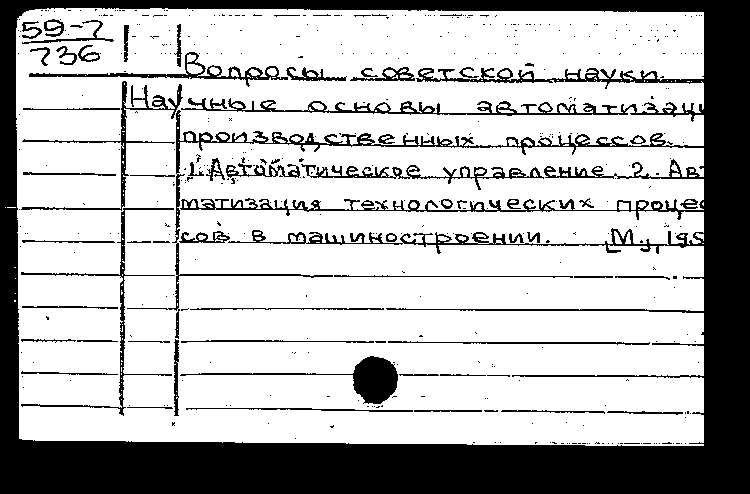 59-7
736
Вопросы советской науки.
Научные основы автоматизаци
производственных процессов.
1. Автоматическое управление 2. Авт
матизация технологических процес
сов в машиностроении. [М.], 195